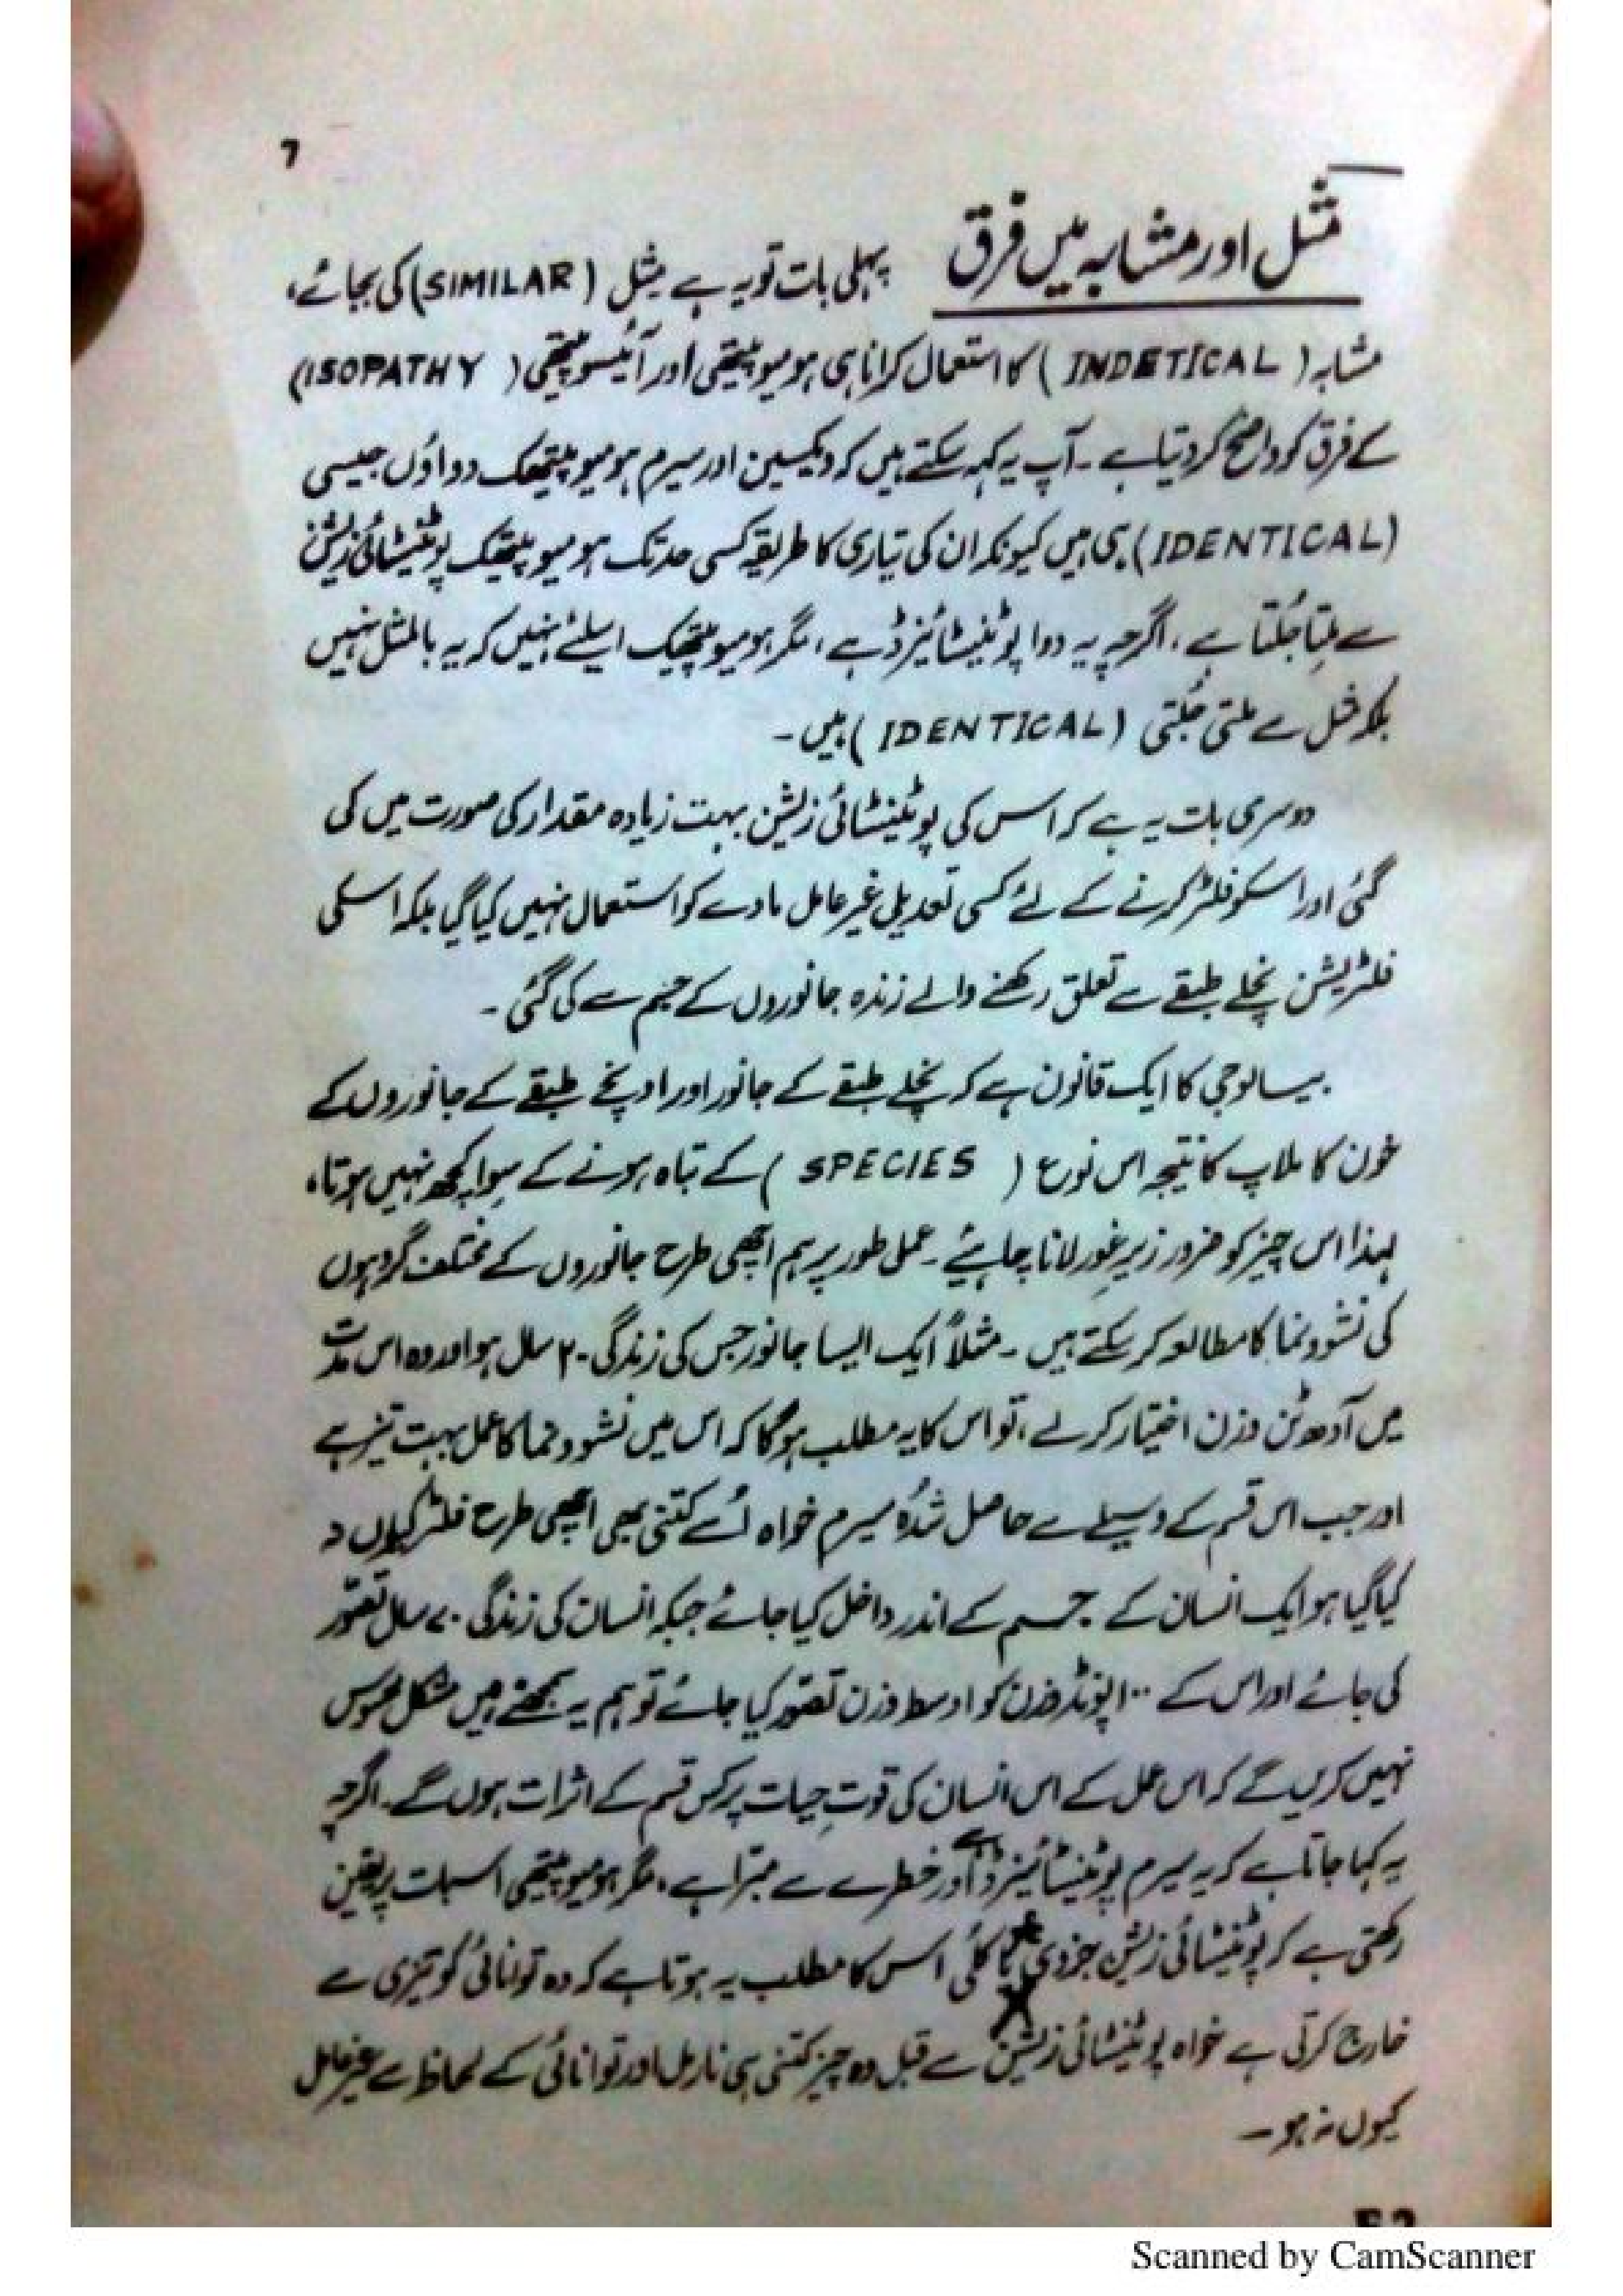 7
مثل اور مشابہ میں فرق
پہلی بات تو یہ ہے مثل (SIMILAR) کی بجائے،
مشابہ (INDETICAL) کا استعمال کرانا ہی ہومیوپیتھی اور آئیسوپیتھی (ISOPATHY)
کے فرق کو واضح کر دیتا ہے ۔ آپ یہ کہہ سکتے ہیں کہ ویکسین اور سیرم ہومیوپیتھک دواؤں جیسی
(IDENTICAL) ہی ہیں کیونکہ ان کی تیاری کا طریقہ کسی حد تک ہومیوپیتھک پوٹینشائی زیشن
سے ملتا جُلتا ہے ، اگرچہ یہ دوا پوٹینشائیزڈ ہے ، مگر ہومیوپیتھک اسلئے نہیں کہ یہ بالمثل نہیں
بلکہ مثل سے ملتی جُلتی (IDENTICAL) ہیں ۔
دوسری بات یہ ہے کہ اس کی پوٹینشائی زیشن بہت زیادہ مقدار کی صورت میں کی
گئی اور اسکو فلٹر کرنے کے لئے کسی تعدیلی غیر عامل مادے کو استعمال نہیں کیا گیا بلکہ اسکی
فلٹریشن نچلے طبقے سے تعلق رکھنے والے زندہ جانوروں کے جسم سے کی گئی ۔
بیالوجی کا ایک قانون ہے کہ نچلے طبقے کے جانور اور اونچے طبقے کے جانوروں کے
خون کا ملاپ کا نتیجہ اس نوع (SPECIES) کے تباہ ہونے کے سِوا کچھ نہیں ہوتا،
لہذا اس چیز کو ضرور زیرِ غور لانا چاہئیے ۔ عملی طور پر ہم اچھی طرح جانوروں کے مختلف گروہوں
کی نشوونما کا مطالعہ کر سکتے ہیں ۔ مثلاً ایک ایسا جانور جس کی زندگی ۲۰ سال ہو اور وہ اس مدت
میں آدھ ٹن وزن اختیار کر لے ، تو اس کا یہ مطلب ہوگا کہ اس میں نشوونما کا عمل بہت تیز ہے
اور جب اس قسم کے وسیلے سے حاصل شُدہ سیرم خواہ اُسے کتنی بھی اچھی طرح فلٹر کیوں نہ
کیا گیا ہو ایک انسان کے جسم کے اندر داخل کیا جائے جبکہ انسان کی زندگی ۷۰ سال تصّور
کی جائے اور اس کے ۱۰۰ پونڈ وزن کو اوسط وزن تصّور کیا جائے تو ہم یہ سمجھنے میں مشکل محسوس
نہیں کریں گے کہ اس عمل کے اس انسان کی قوتِ حیات پر کس قسم کے اثرات ہوں گے ۔ اگرچہ
یہ کہا جاتا ہے کہ یہ سیرم پوٹینشائیزڈ ہے اور خطرے سے مبّرا ہے ، مگر ہومیوپیتھی اسبات پر یقین
رکھتی ہے کہ پوٹینشائی زیشن جزوی یا کلّی اس کا مطلب یہ ہوتا ہے کہ وہ توانائی کو تیزی سے
خارج کرتی ہے خواہ پوٹینشائی زیشن سے قبل وہ چیز کتنی ہی نارمل اور توانائی کے لحاظ سے غیر عامل
کیوں نہ ہو ۔
Scanned by CamScanner